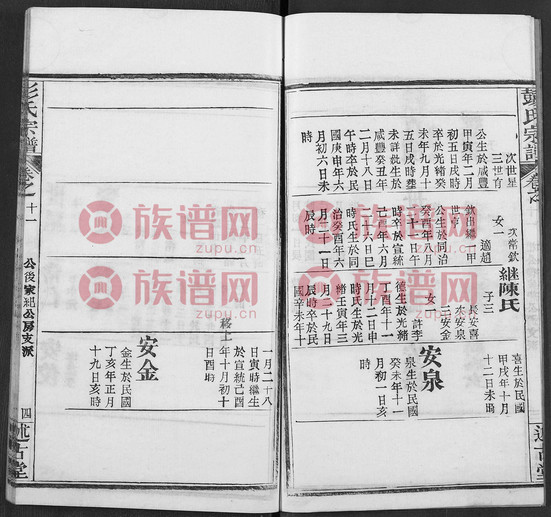 彭氏宗譜
卷之
次世星
三世育
公生於咸豐
甲寅年二月
初五日戌時
卒於光緒癸
未年九月十
五日戌時葬
未詳批生於
咸豐癸丑年
二月十八日
午時卒於民
國庚申年六
月初六日未
時
女一
適趙
欽
世
公生於同治
癸酉年八月
二十一日午
時卒於宣統
己酉年六月
二十六日巳
時氏生同
治癸酉年六
月二十一日
辰時
繼陳氏
子三
長安喜
次安泉
三安金
女
許李
德生於光緒
丁酉年十一
月二日申
時氏生於光
緒壬寅年三
月二十九日
辰時卒於民
國辛未年十
喜生於民國
甲戌年十月
十二日未時
安泉
泉生於民國
癸未年十一
月初一日亥
時
述古堂
彭氏宗譜
卷之
十一
公後家紀公房支派
四
述古堂
一月二十八
日寅時繼生
於宣統己酉
年十月初十
日酉時
移土
安金
金生於民國
丁亥年正月
十九日亥時
族谱网
zupu.cn
族谱网
zupu.cn
族谱网
zupu.cn
族谱网
zupu.cn